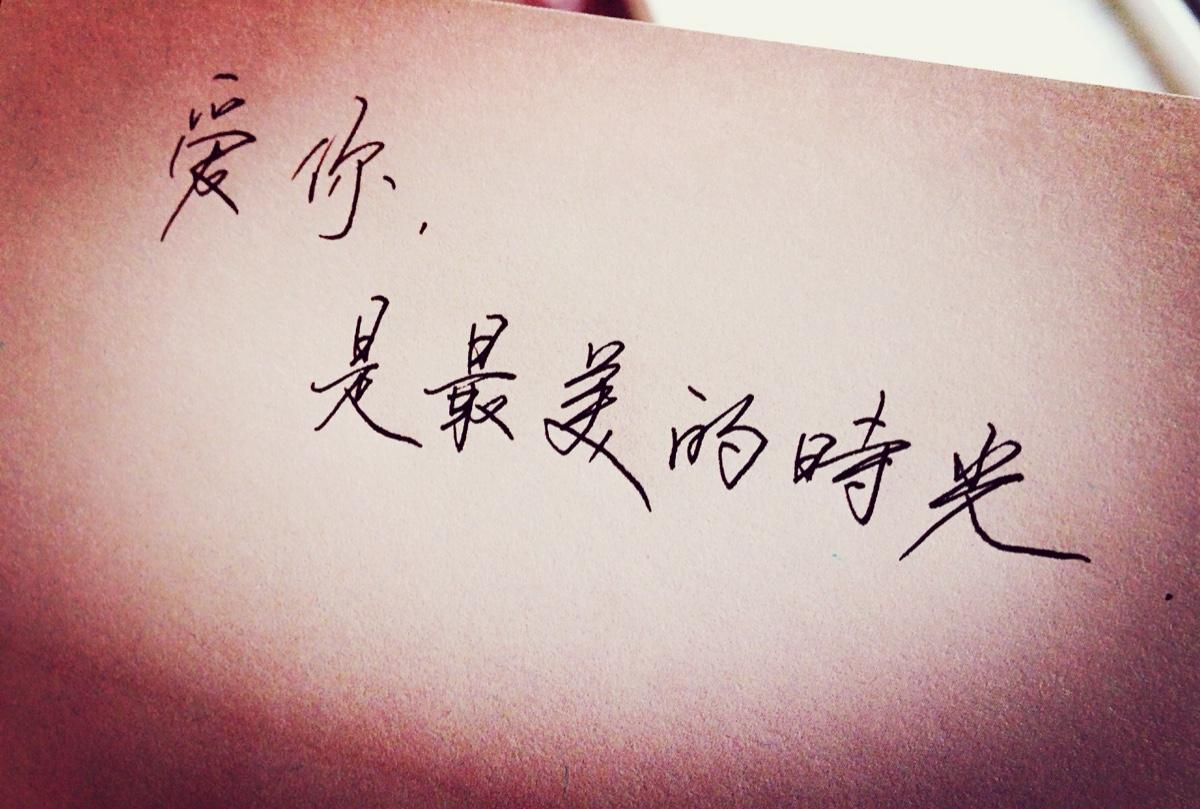 爱你,
是最美的時光